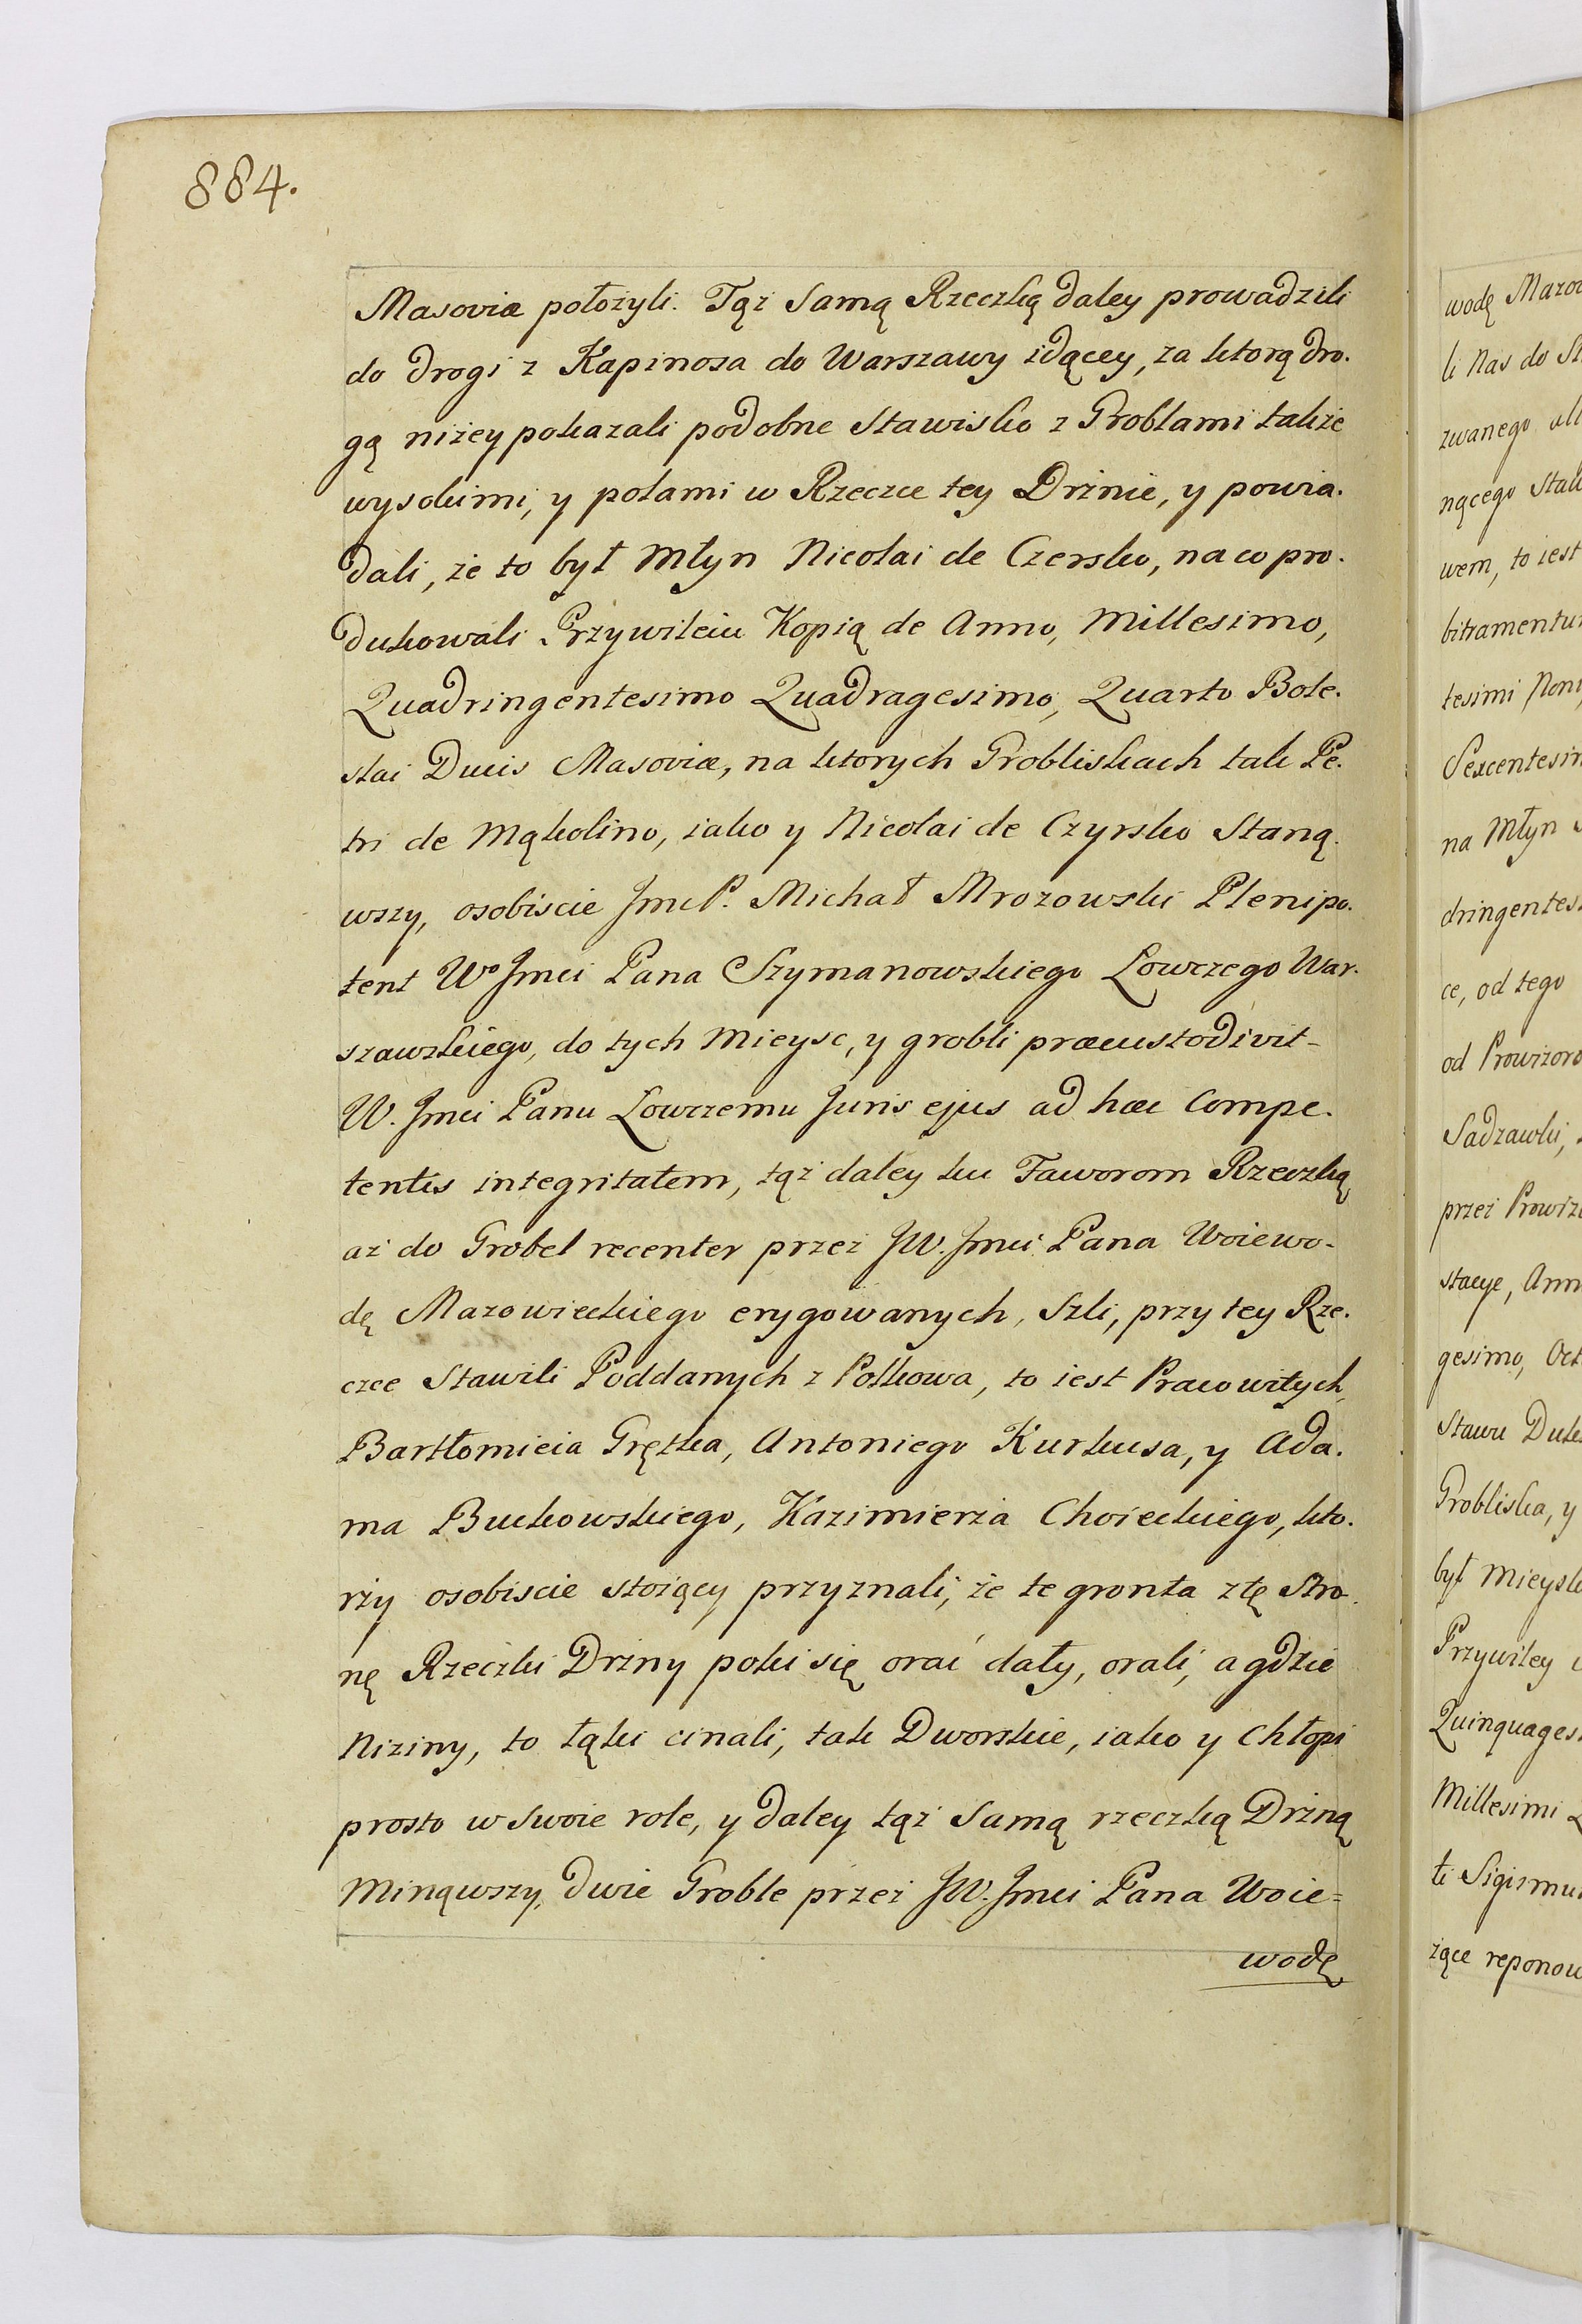 884.
Masoviæ położyli. Tąż Samą Rzeczką daley prowadzili
do drogi z Kapinosa do Warszawy idącey, za którą dro.
gą niżey pokazali podobne Stawisko z Groblami także
wysokimi, y polami w Rzeczce tey Drżnie, y powia.
dali, że to był Młyn Nicolai de Czersko, na co pro.
dukowali Przywileiu Kopią de Anno, Millesimo,
Quadringentesimo Quadragesimo, Quarto Bole.
slai Ducis Masoviæ, na ktorych Grobliskach tak Pe.
tri de Mąkolino, iako y Nicolai de Czyrsko Staną.
wszy, osobiscie Jmc P. Michał Mrozowski Plenipo.
tent Wo Jmci Pana Szymanowskiego Łowczego War.
szawskiego, do tych Mieysc, y grobli præcustodivit-
W. Jmci Panu Łowczemu Juris ejus ad hæc Compe.
tentis integritatem, tąż daley ku Faworom Rzeczką
aż do Grobel recenter przez JW. Jmci Pana Woiewo-
dę Mazowieckiego erygowanych, Szli, przy tey Rze.
czce Stawili Poddanych z Polkowa, to iest Pracowitych,
Bartłomieia Grętka, Antoniego Kurkusa, y Ada.
ma Bukowskiego, Kazimierza Choieckiego, kto.
rzy osobiscie stoiący przyznali, że te gronta z tę Stro.
nę Rzeczki Drżny poki się orać dały, orali, a gdzie
Niziny, to łąki cinali, tak Dworskie, iako y Chłopi
prosto w Swoie role, y daley tąż Samą rzeczką Drżną
Minąwszy, dwie Groble przez JW. Jmci Pana Woie=
wodę
wodę Mazow
li Nas do St
zwanego all
nącego Staw
wem, to iest
bitramentu
tesimi Non
Sexcentesim
na Młyn
dringentes
ce, od tego
od Prowizoro
Sadzawki,
przez Prowiz
stacye, Ann
gesimo, Oct
Stawu
Grobliska, y
był mieysk
Przywiley
Quinquages
Millesimi
ti Sigismu
żące reponow